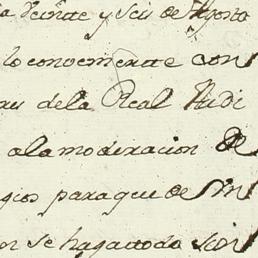 a Veinte y Seis de Agosto
lo conzerniente con
de la Real Audi
a la moderacion de
gios para que de sin
or se haga todo con